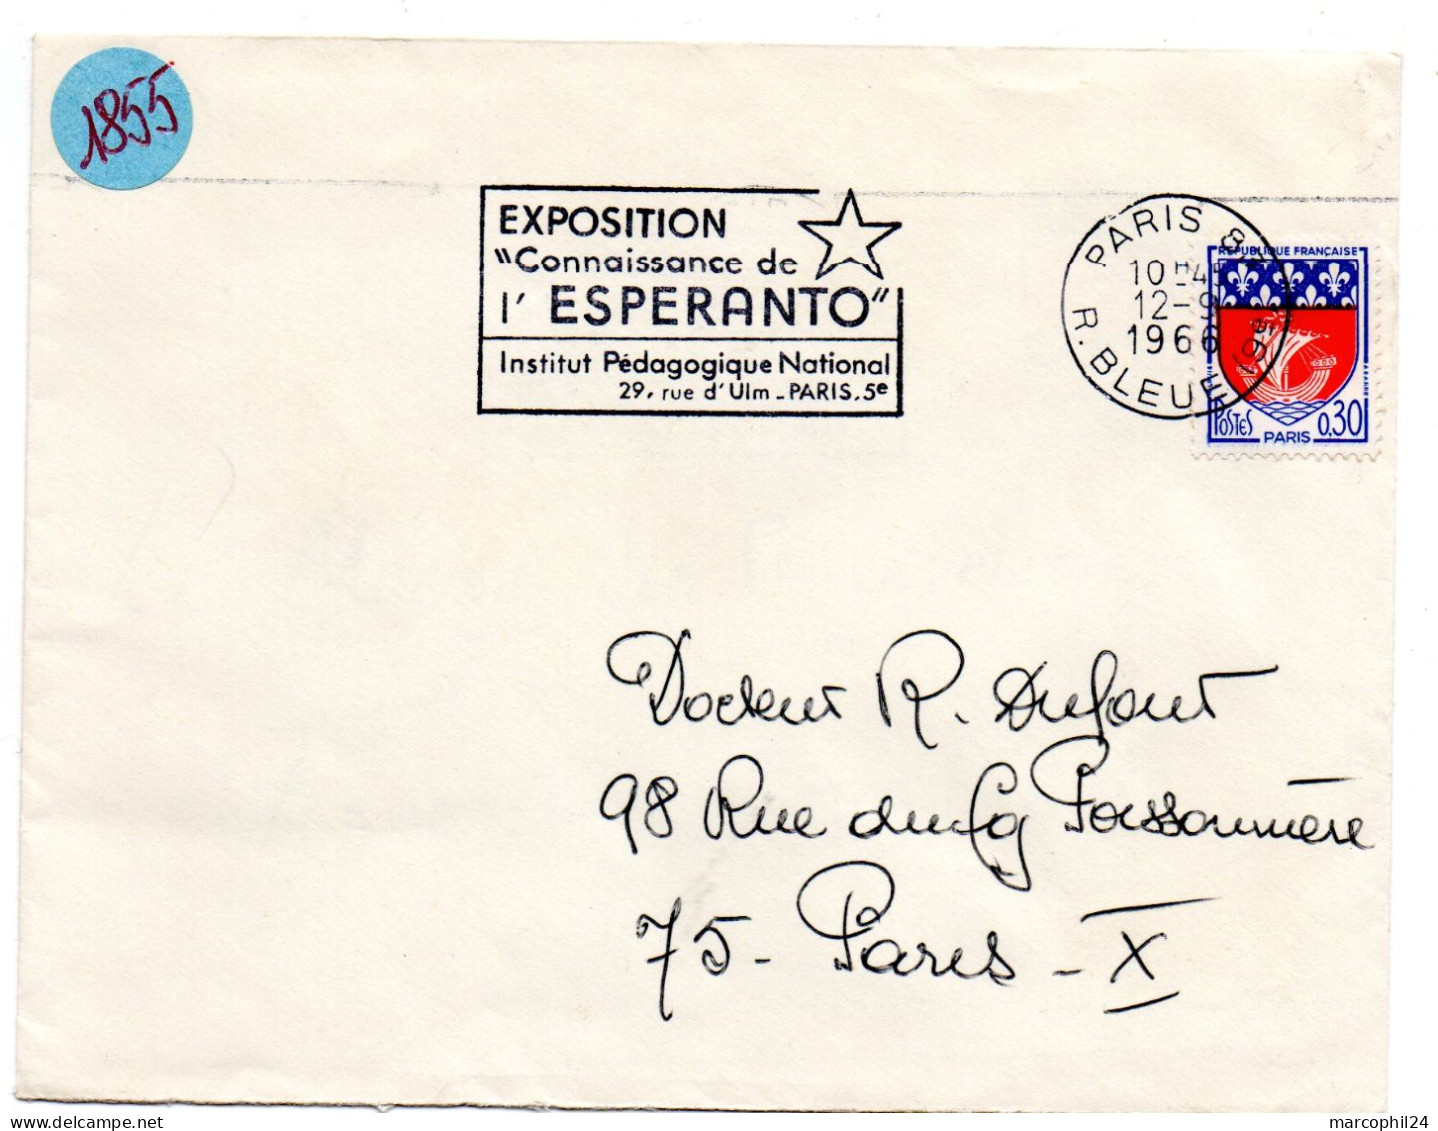 1855
EXPOSITION
"Connaissance de
l'ESPERANTO"
Institut Pédagogique National
29, rue d'Ulm - PARIS. 5e
PARIS 8
10H45
12-9
1966
R. BLEUE
REPUBLIQUE FRANÇAISE
POSTES
PARIS
0,30
Docteur R. Dufour
98 Rue du fg Poissonnière
75 - Paris - X
marcophil24